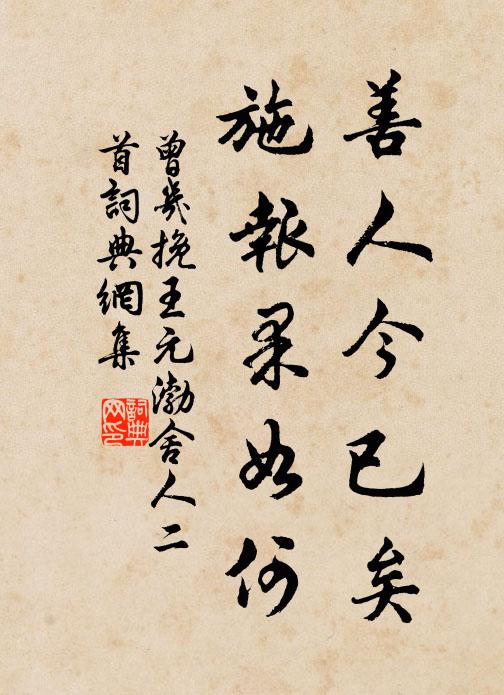 善人今已矣
施報果如何
曾幾挽王元渤舍人二
首詞典網集
詞典
网印